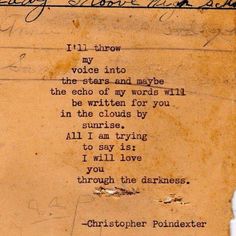 I'll throw
my
voice into
the stars and maybe
the echo of my words will
be written for you
in the clouds by
sunrise.
All I am trying
to say is:
I will love
you
through the darkness.
-Christopher Poindexter